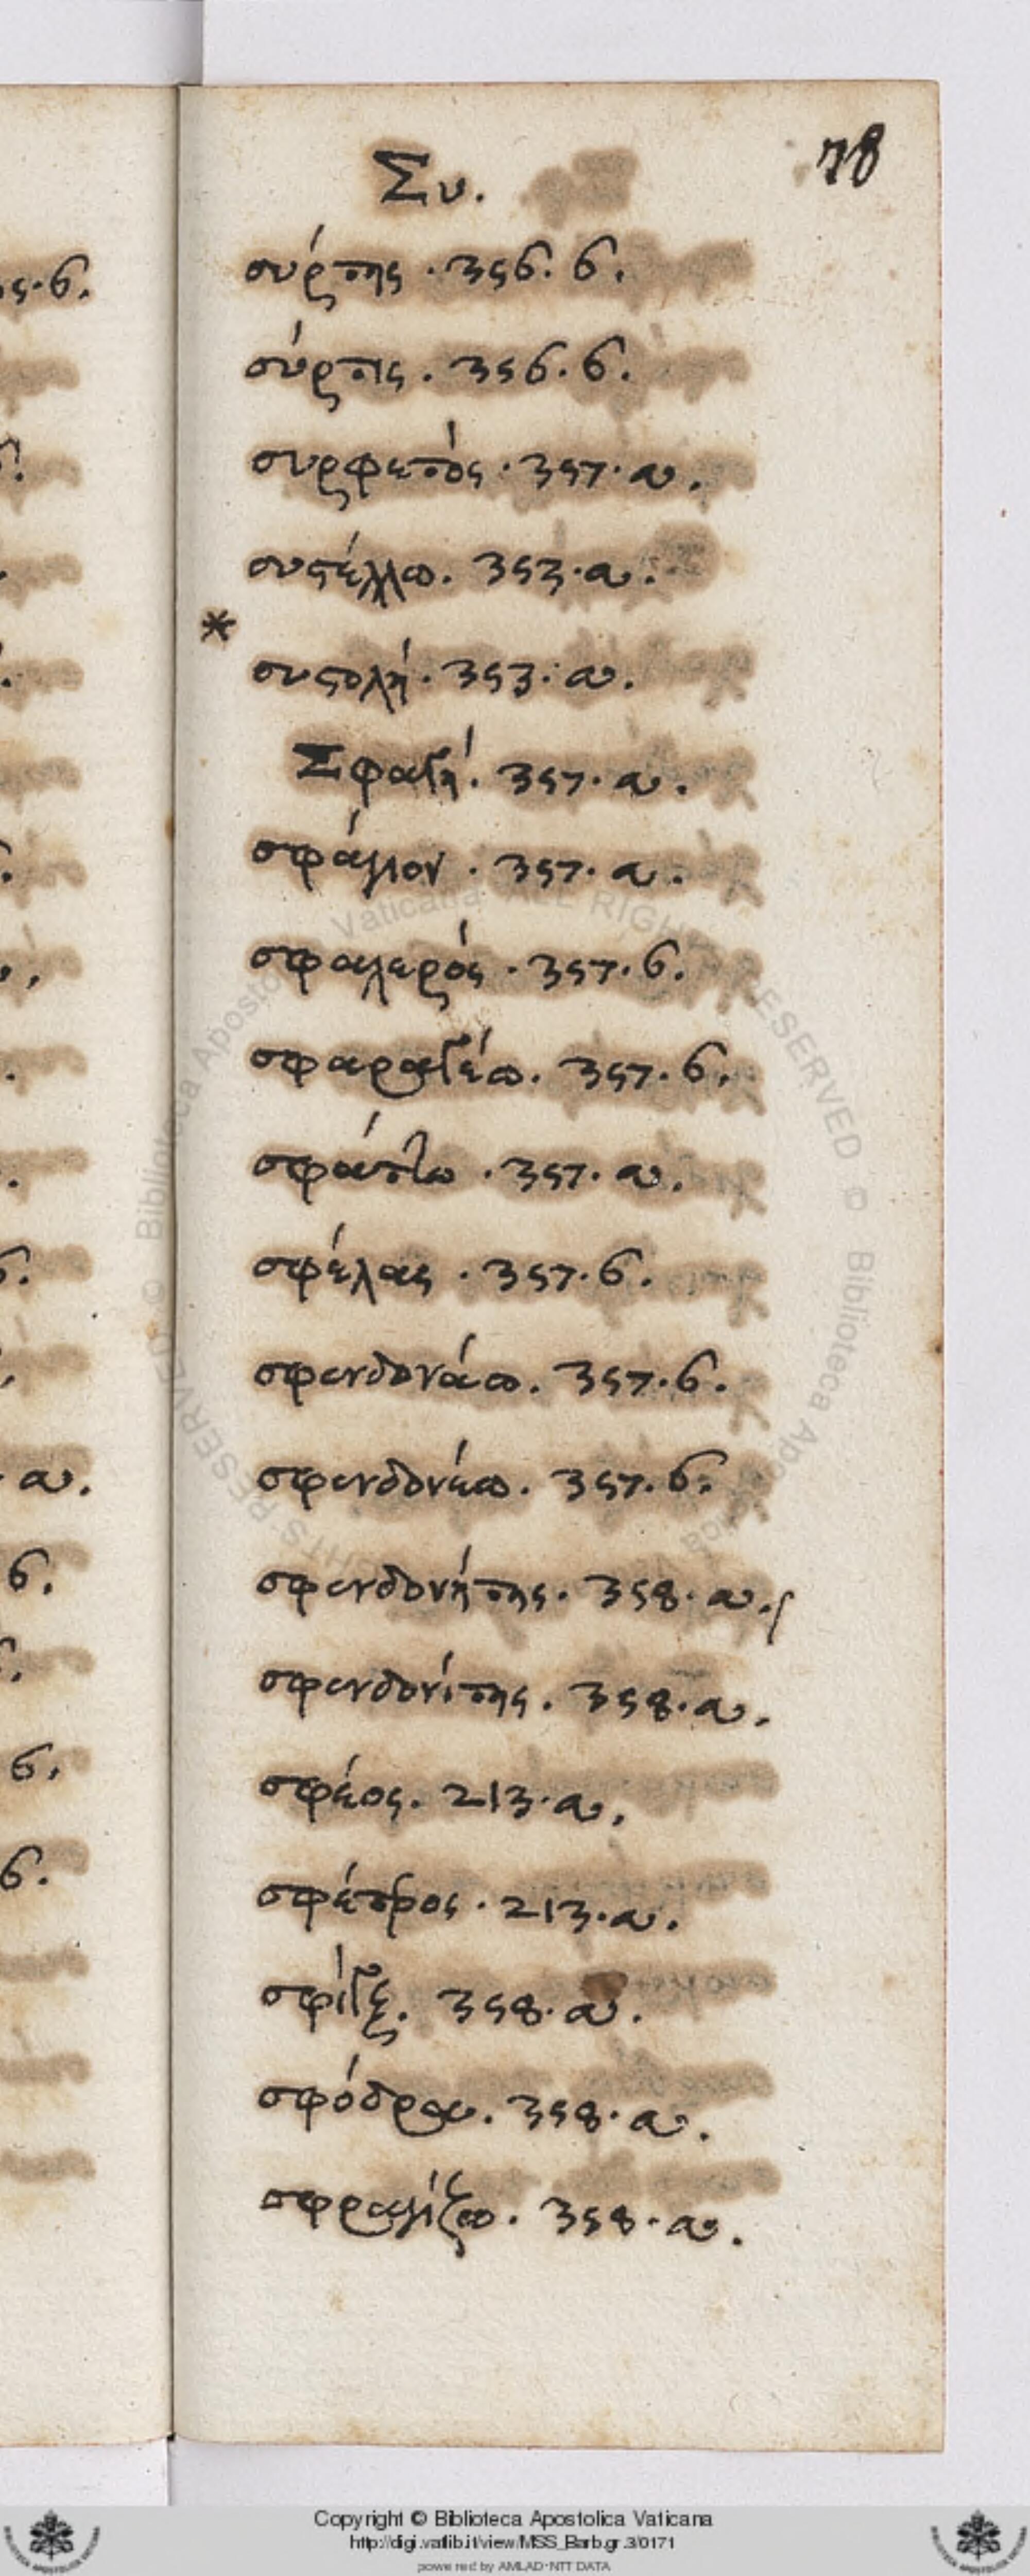 78
Συ.
σύρτης · 356. β.
σύρτις . 356. β.
συρφετὸς · 357. α.
συστέλλω. 353. α.
*
συστολή · 353. α.
Σφαγή. 357. α.
σφάγιον · 357. α.
σφαλερός · 357. β.
σφαραγέω. 357. β.
σφάττω · 357. α.
σφέλας · 357. β.
σφενδονάω. 357. β.
σφενδονέω. 357. β.
σφενδονήτης. 358. α.
σφενδονίτης. 358. α.
σφέος. 213. α.
σφέτερος · 213. α.
σφίγξ. 358. α.
σφόδρα. 358. α.
σφραγίζω. 358. α.
ς. β.
α.
β.
β.
β.
Copyright © Biblioteca Apostolica Vaticana
http://digi.vatlib.it/view/MSS_Barb.gr.3/0171
powered by AMLAD-NTT DATA